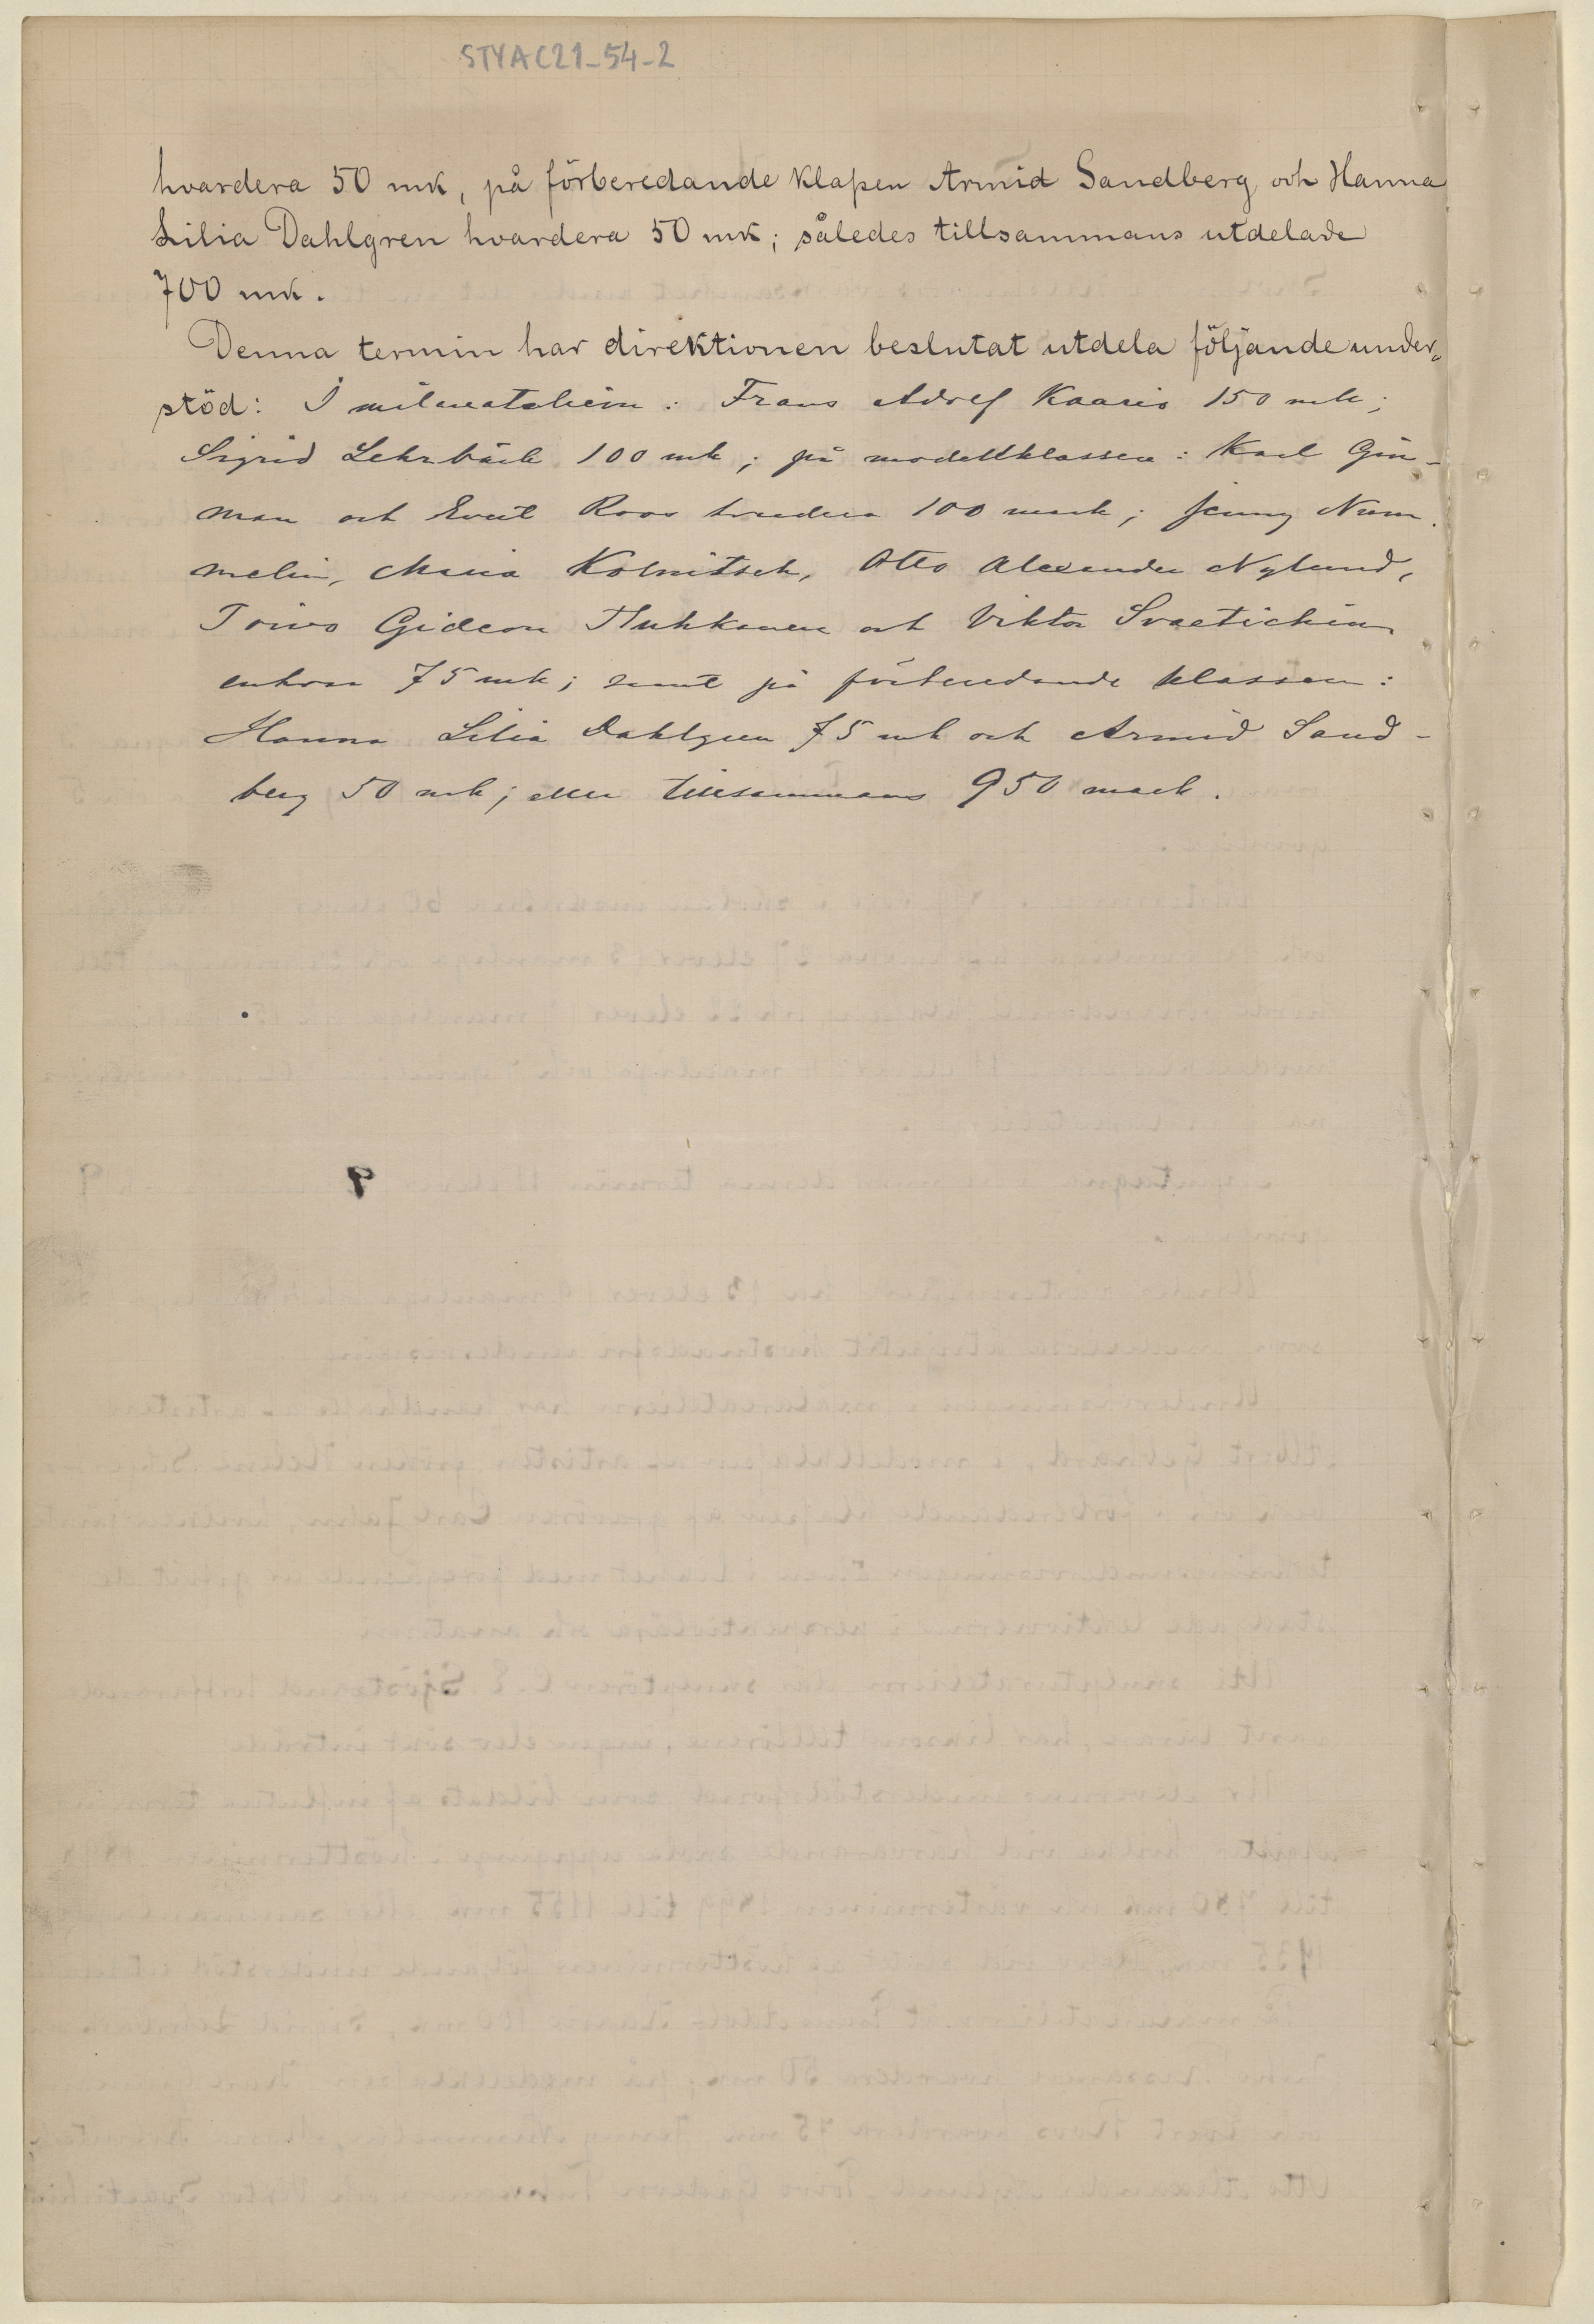 STYA C21_54-2
hvardera 50 mk, på förberedande klaßen Armid Sandberg och Hanna
Lilia Dahlgren hvardera 50 mk; således tillsammans utdelade
700 mk.
Denna termin har direktionen beslutat utdela följande under„
stöd: I målareateliern: Frans Adolf Kaario 150 mk;
Sigrid Lehrbäck 100 mk; på modellklassen: Karl Gin-
man och Evert Roos hvardera 100 mark; Jenny Num-
melin, Maria Kolmitsch, Otto Alexander Nylund,
Toivo Gideon Tuhkanen och Viktor Svaetichin
enhvar 75 mk; samt på förberedande klassen:
Hanna Lilia Dahlgren 75 mk och Armid Sand-
berg 50 mk; eller tillsammans 950 mark.